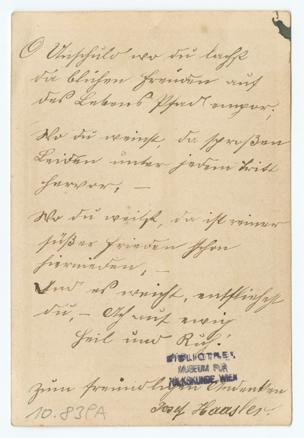 O Unschuld wo du lachst
da blühen Freuden auf
des Lebens Pfad empor;
Wo du weinst, da sproßen
Leiden unter jedem Tritt
hervor; —
Wo du weilst, da ist reiner
süßer Frieden schon
hiernieden, —
Und es weicht, entfliehest
du, — Ach auf ewig
Heil und Ruh!
BIBLIOTHEK
MUSEUM FÜR
VOLKSKUNDE, WIEN
Zum freundlichen Andenken
10.839A
Haesler